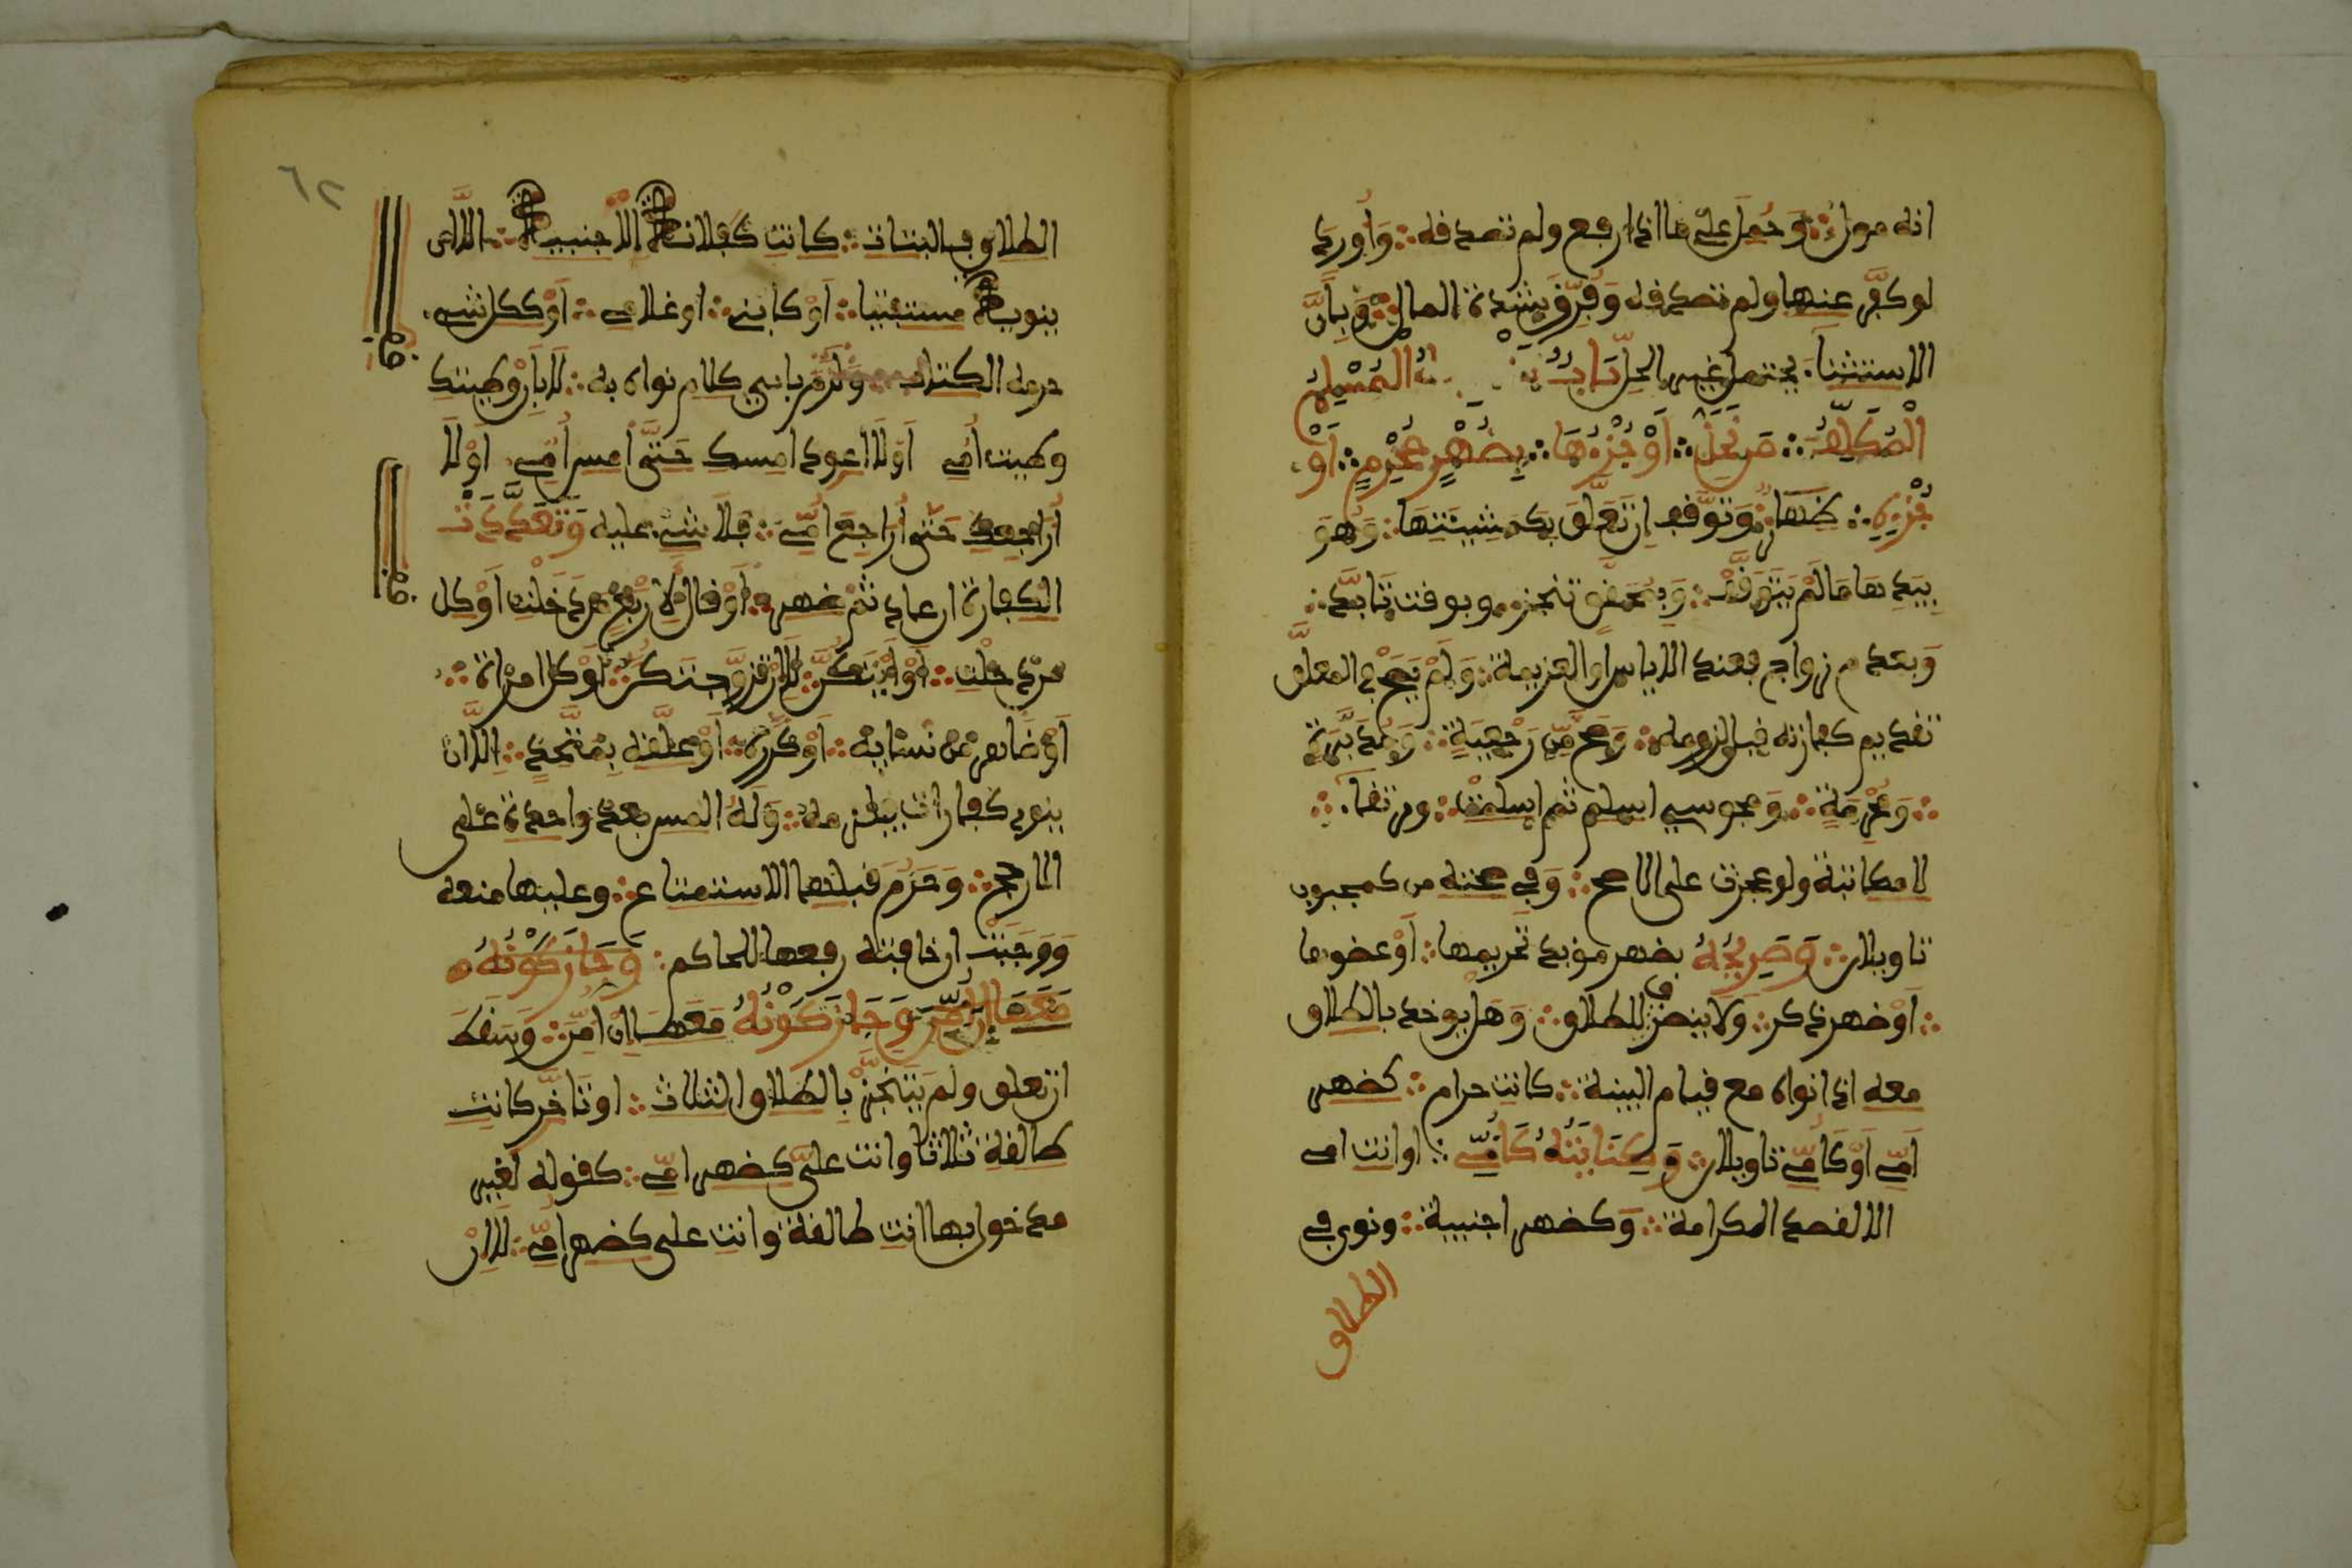 انه مول وَحُمِلَ على ما اذا رفع ولم تصدفه وَأُورِدَ
لو كفّر عنها ولم تصدفه وَفُرِّقَ بشدة المال وَبِأَنَّ
الاستثنا يحتمل غير الحلّ بَابٌ المسلم
الْمُكَلَّفِ مَن تَحِلُّ أَوْ جُزْءَهَا بِضَهْرِ مَحْرَمٍ أَوْ
جُزْءِهِ ضهار وَتَوَقَّفَ إن تَعَلَّقَ بِكَمَشِيئَتِهَا وَهُوَ
بِيَدِهَا مَا لَمْ تُوقَفْ وَبِمُحَقَّقٍ تنجز وبوفت تَأَبَّدَ
وَبعدم زواج فعند الاياس او العزيمة وَلَمْ يَصِحَّ في المعلق
تفديم كفارته فبل لزومه وَصَحَّ مِن رَجْعِيَّةٍ وَمُدَبَّرَةٍ
وَمُحْرِمَةٍ وَمجوسي اسلم ثم اسلمت ورتفا
لا مكاتبة ولو عجزت على الاصح وَفي صحته من كمجبوب
تاويلان وَصَرِيحُهُ بضهر مؤبد تحريمها أَوْ عضوها
أَوْ ضهر ذكر وَلَا ينصرف للطلاق وَهَل يوخذ بالطلاق
معه اذا نواه مع فيام البينة كانت حرام كضهر
أُمّي أَوْ كَأُمّي تاويلان وَكِنَايَتُهُ كَأُمِّي او انت امي
الا لفصد الكرامة وَكضهر اجنبية ونوي في
الطلاق
٦٢
الطلاق فالبتات كانت كفلانة الاجنبية الا ان
ينويه مستفتيا أَوْ كابني او غلامي أَوْ ككل شيء
حرمه الكتاب وَلَزِمَ باي كلام نواه به لَا بِإِنْ وطيتك
وطيت أُمي أَوْ لَا اعود امسك حَتَّى أمس أُمّي أَوْ لَا
أراجعك حَتَّى أُرَاجِعَ أُمّي فلا شيء عليه وَتَعَدَّدَتْ
الكفارة ان عاد ثم ضهر أَوْ فال لأربع من دخلت أَوْ كل
من دخلت أَوْ أَيَّتكُنَّ لَا إن تزوجتكن أَوْ كل امراة
أَوْ ضَاهر من نسايه أَوْ كرره أَوْ علّفه بِمُتَّحِدٍ إِلَّا ان
ينوي كفارات فيلزمه وَلَهُ المس بعد واحدة على
الارجح وَحَرُمَ فبلها الاستمتاع وعليها منعه
وَوَجَبَ ان خافته رفعها للحاكم وَجَازَ كَوْنُهُ
مَعَهَا إِنْ أُمِنَ وَجَازَ كَوْنُهُ مَعَهَا إِن أُمِنَ وَسَفَطَ
ان تعلق ولم يَتَنَجَّزْ بِالطلاق الثلاث او تَأَخَّرَ كانت
طالفة ثلاثا وانت عليّ كضهر امّي كفوله لغير
مدخول بها انت طالفة وانت على كضهر أُمّي لَا إن